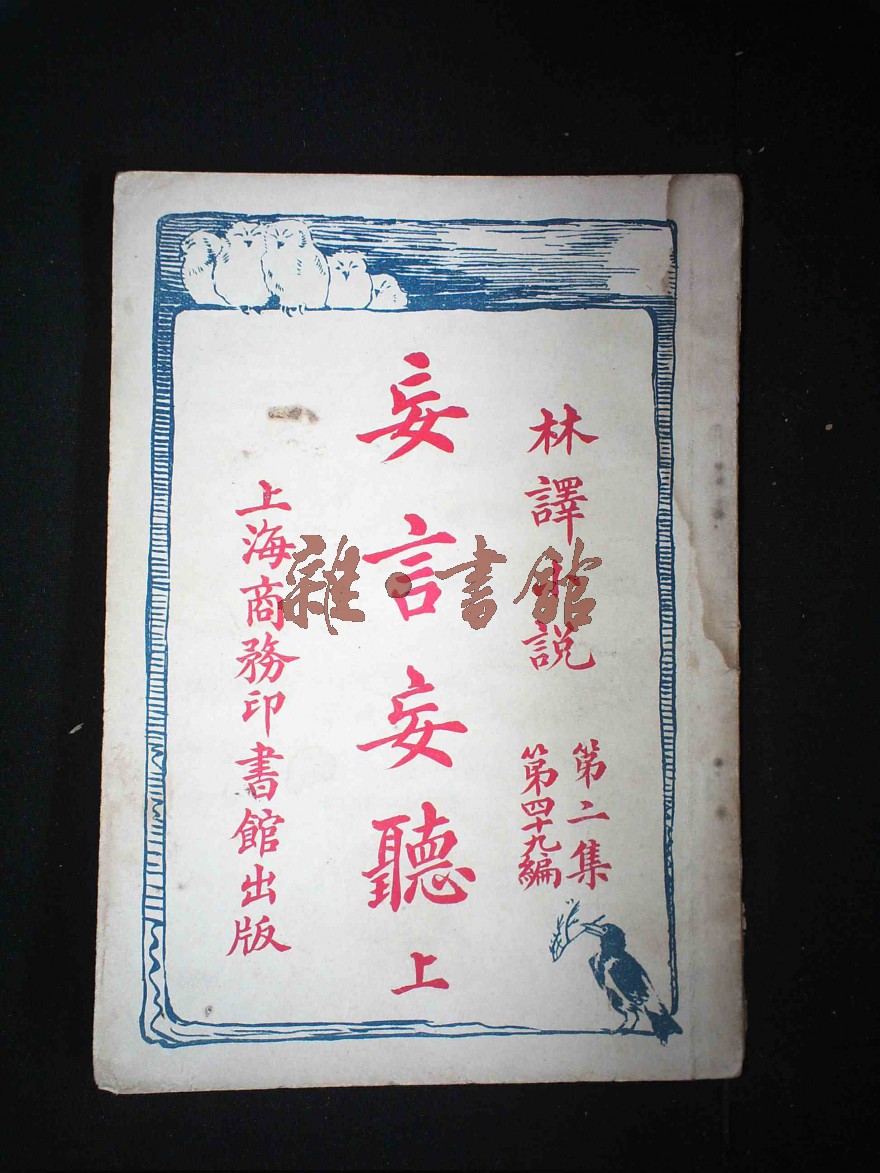 林譯小説
第二集
第四十九編
妄言妄聽 上
上海商務印書館出版
雜·書館